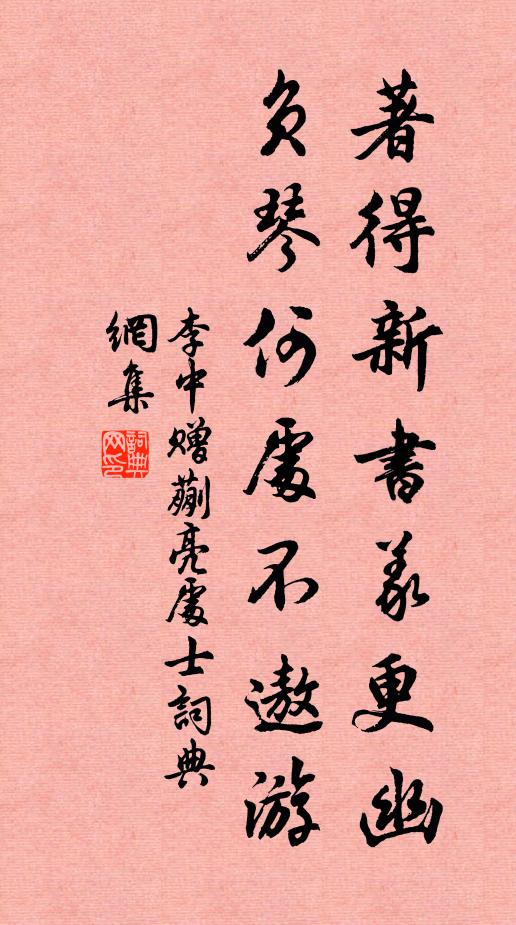 著得新書義更幽
負琴何處不遨游
李中贈蒯亮處士詞典
網集
詞典网印